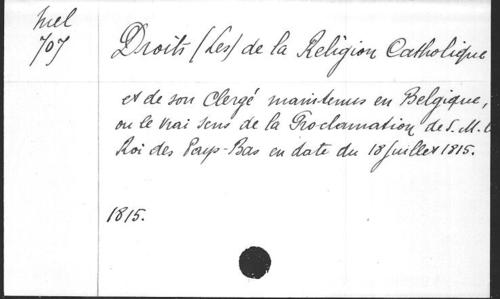 Mel
707
Droits (Les) de la Religion Catholique
et de son Clergé maintenus en Belgique,
ou le vrai sens de la Proclamation de S. M. l
Roi des Pays-Bas en date du 18 Juillet 1815.
1815.